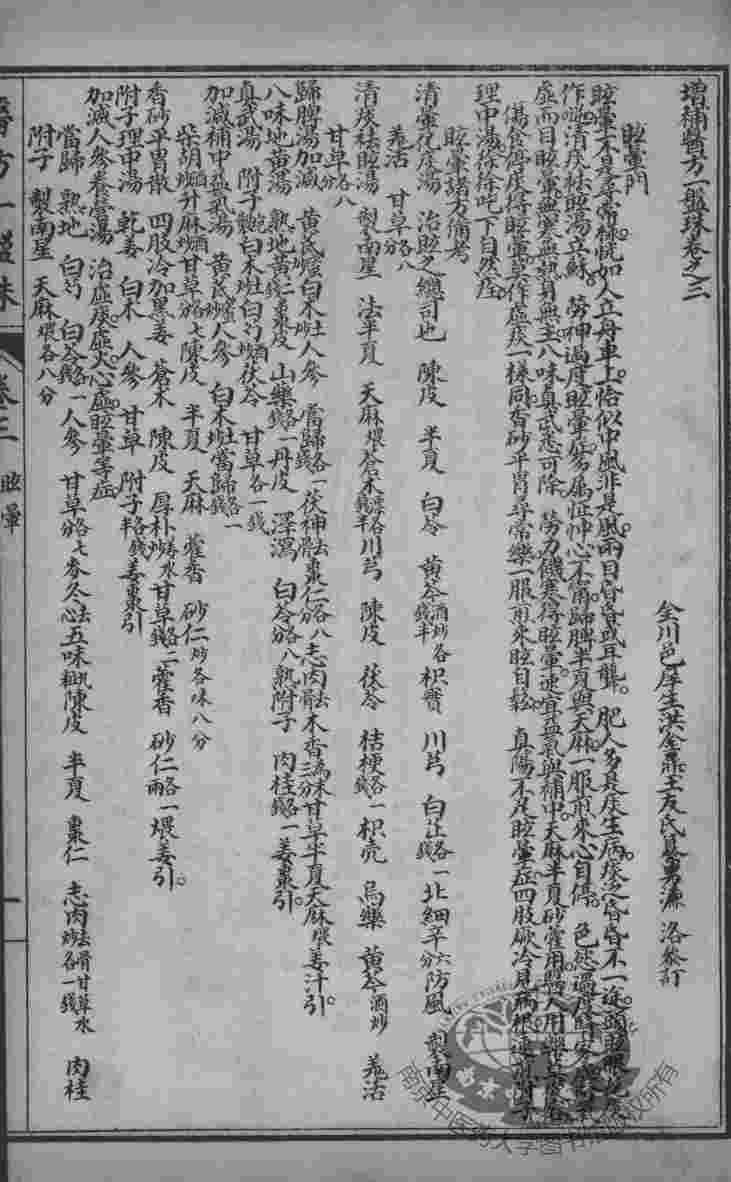 增補醫方一盤珠卷之三
金川邑庠生洪金鼎玉友氏纂男濂 洛參訂
眩暈門
眩暈不是尋常病恍如人立舟車上恰似中風非是風兩目昏昏或耳聾。肥人多是痰生病痰之昏昏不一從頭眩眼花痰
作崇清痰祛眩湯立蘇。勞神過度眩暈屬怔忡心不甯歸脾半夏與天麻一服煎來心自停。色慾過度
虛而目眩暈無寒無熱身無主八味真武悉可除 勞力饑寒得眩暈速宜益氣與補中天麻半夏砂藿用醫人用藥
傷食停痰得眩暈莫作虛痰一樣同香砂平胃尋常藥一服煎來眩自鬆 真陽不足眩暈症四肢厥冷見病根速煎附子
理中湯徐徐吒下自然痊
眩暈諸方備考
清暈化痰湯 治眩之總司也 陳皮 半夏 白苓 黃芩酒炒各錢半 枳實 川芎 白芷各一錢 北細辛六分 防風 製南星
羌活 甘草各八分
清痰祛眩湯 製南星 法半夏 天麻煨 蒼朮漂各錢半 川芎 陳皮 茯苓 桔梗各一錢 枳壳 烏藥 黃芩酒炒 羌活
甘草各八分
歸脾湯加減 黃芪蜜炒 白朮土炒 人參 當歸各一錢 茯神去骨 棗仁各八分 志肉去骨 木香三分為末 甘草 半夏 天麻煨 姜汁引。
八味地黃湯 熟地 黃肉棗皮 山藥各一錢 丹皮 澤瀉 白苓各八分 熟附子 肉桂各一錢 姜棗引。
真武湯 附子炮 白朮土炒 白芍酒炒 茯苓 甘草各一錢
加減補中益氣湯 黃芪蜜炒 人參 白朮土炒 當歸各一錢
柴胡酒炒 升麻酒炒 甘草各七分 陳皮 半夏 天麻 藿香 砂仁炒各味八分
香砂平胃散 四肢冷加黑姜 蒼朮 陳皮 厚朴姜水炒 甘草各二錢 藿香 砂仁各一兩 煨姜引。
附子理中湯 乾姜 白朮 人參 甘草 附子各錢半 姜棗引
加減人參養營湯 治虛痰虛火心虛眩暈等症
當歸 熟地 白芍 白苓各一錢 人參 甘草各七分 麥冬去心 五味 陳皮 半夏 棗仁 志肉去骨甘草水炒各一錢 肉桂
附子 製南星 天麻煨各八分
醫方一盤珠 卷三 眩暈 一
南京中医药大学图书馆版权所有